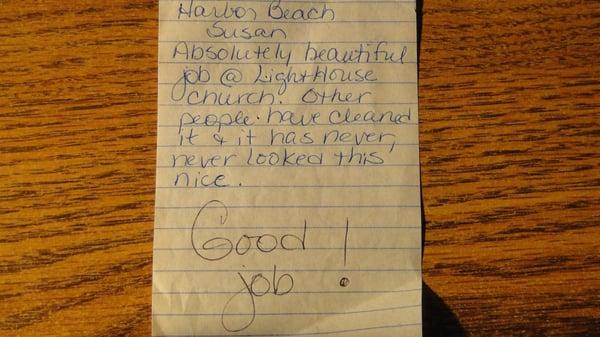 Harbor Beach
Susan
Absolutely beautiful
job @ LightHouse
church. Other
people have cleaned
it & it has never,
never looked this
nice.
Good !
job